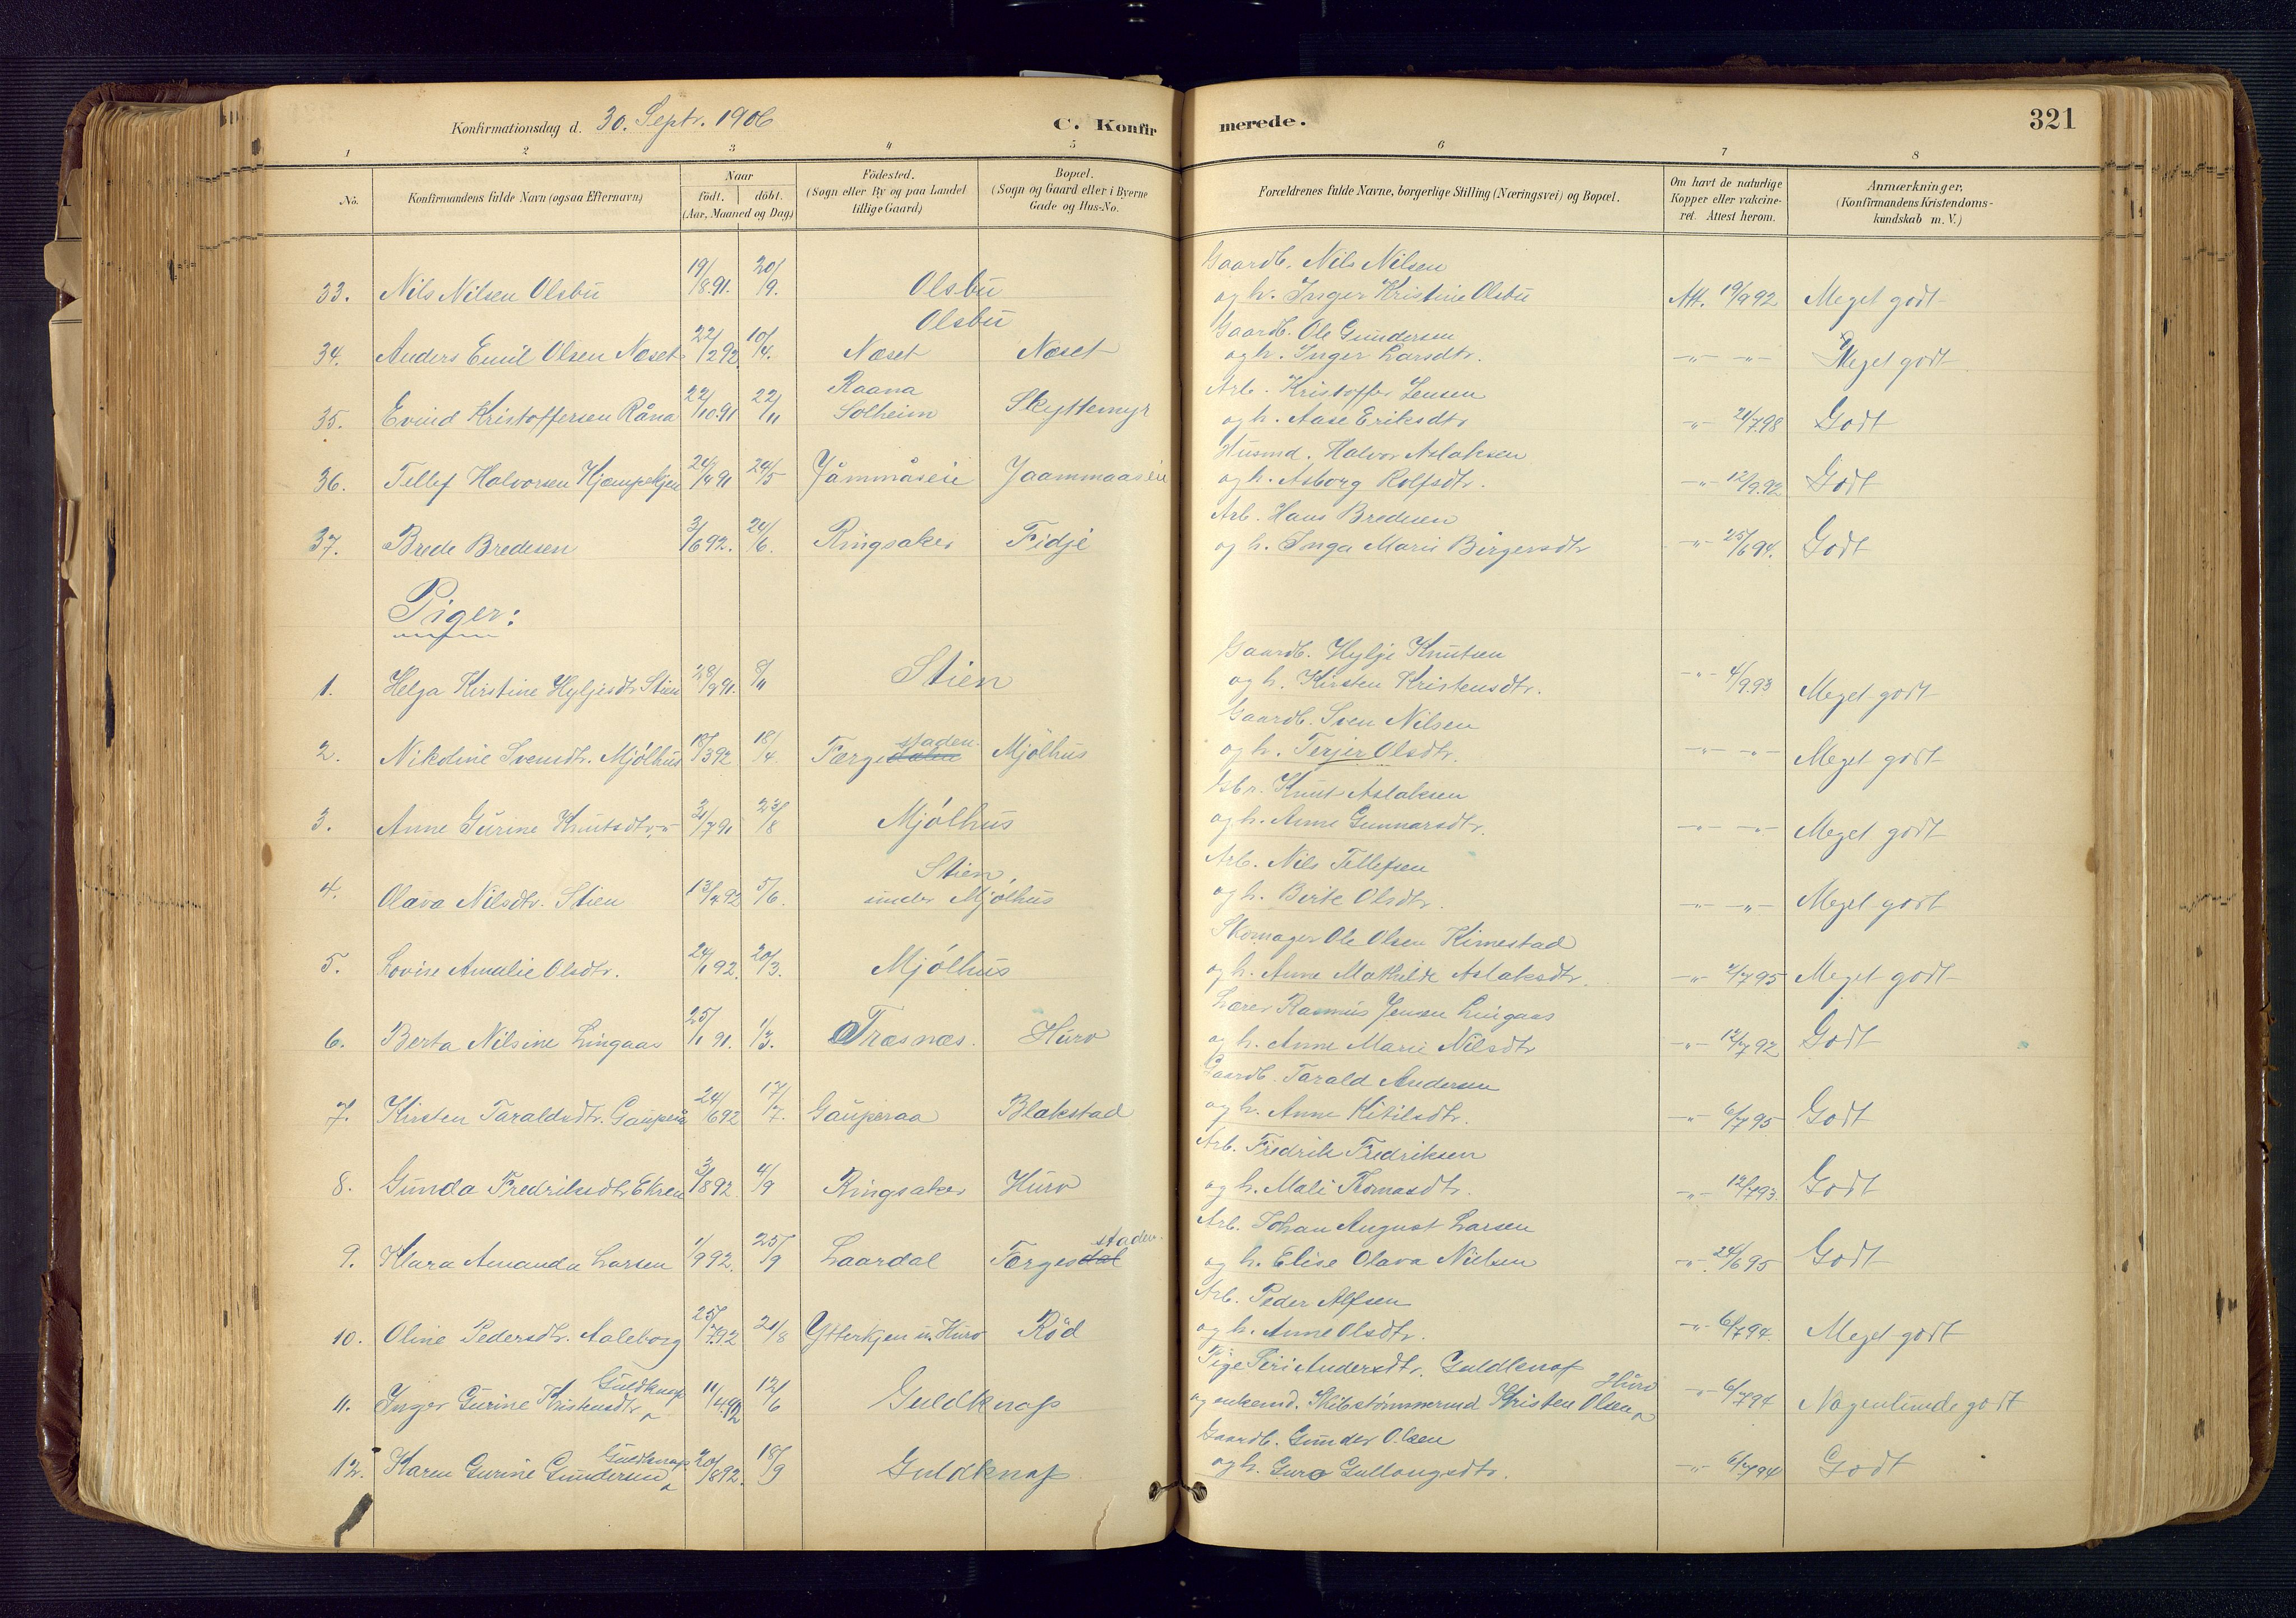 Konfirmationsdag d. 30. Septr. 1906 C. Konfirmerede. 321
1 2 3 4 5 6 7 8
No. Konfirmandens fulde Navn (ogsaa Efternavn) Naar födt. döbt. (Aar, Maaned og Dag) Födested. (Sogn eller By og paa Landet tillige Gaard) Bopæl. (Sogn og Gaard eller i Byerne Gade og Hus-No. Forældrenes fulde Navne, borgerlige Stilling (Næringsvei) og Bopæl. Om havt de naturlige Kopper eller vakcineret. Attest herom. Anmærkninger, (Konfirmandens Kristendomskundskab m. V.)
Gaardb. Nils Nilsen
33. Nils Nilsen Olsbu 19/8.91. 20/9. Olsbu og h. Inger Kristine Olsbu Att. 19/9 92 Meget godt
Olsbu Gaardb. Ole Gundersen
34. Anders Emil Olsen Næset 22/2 92 10/4. Næset Næset og h. Inger Larsdtr. -"- -"- Meget godt
Raana Arb. Kristoffer Jensen
35. Evind Kristoffersen Råna 22/10.91 22/11 Solheim Skyttemyr og h. Aase Eriksdtr -"- 21/7.98 Godt
Husmd. Halvor Aslaksen
36. Tellef Halvorsen Kjæmpekjen 24/4 91 24/5 Jåmmåseie Jaammaaseie og h. Asborg Rolfsdtr. -"- 12/9.92 Godt
Arb. Hans Bredesen
37. Brede Bredesen 3/6 92. 24/6. Ringsaker Fidje og h. Inga Marie Birgersdtr -"- 25/6 94. Godt
Piger:
Gaardb. Hylje Knutsen
1. Helga Kirstine Hyljesdtr Stien 28/9 91. 8/11 Stien og h. Kirsten Kristensdtr. -"- 4/9.93 Meget godt
Gaardb. Sven Nilsen
2. Nikoline Svendtr. Mjölhus 18/3 92 18/4. Færgestaden Mjölhus og h. Terjer Olsdtr. -"- -"- Meget godt
Gbr. Knut Aslaksen
3. Anne Gurine Knutsdtr -"- 31/7 91 23/8 Mjölhus og h. Anne Gunnarsdtr. -"- -"- Meget godt
Stien, Arb. Nils Tellefsen
4. Olava Nilsdtr. Stien 13/4 92 5/6. under Mjölhus og h. Berte Olsdtr. -"- -"- Meget godt
Skomager Ole Olsen Kimestad
5. Lovise Amalie Olsdtr. 24/1 92. 20/3. Mjölhus og h. Anne Mathilde Aslaksdtr. -"- 2/7 95 Meget godt
Lærer Rasmus Jensen Lingaas
6. Berta Nilsine Lingaas 25/1 91. 1/3. Træsnæs. Hurv og h. Anne Marie Nilsdtr -"- 12/7 92 Godt
Gaardb. Tarald Andersen
7. Kirsten Taraldsdtr. Gauperå 24/6 92 17/7. Gauperaa Blakstad og h. Anne Kitilsdtr. -"- 6/7 95 Godt
Arb. Fredrik Fredriksen
8. Gunda Fredriksdtr Ekren 3/8 92. 4/9 Ringsaker Hurv og h. Mali Tomasdtr. -"- 12/7 93. Godt
Arb. Johan August Larsen
9. Klara Amanda Larsen 1/9 92. 25/9 Laardal Færgestaden og h. Elise Olava Nielsen -"- 24/6 95 Godt
Arb. Peder Alfsen
10. Oline Pedersdtr. Aaleborg 25/7.92 21/8 Ytterkjen u. Hurv Röd og h. Anne Olsdtr. -"- 6/7 94. Meget godt
Guldknap Pige Siri Andersdtr. Guldknap Hurv
11. Inger Gurine Kristensdtr 11/4.92 12/6 Guldknap og enkemd. Skibstömmermd Kristen Olsen -"- 6/7 94 Nogenlunde godt
Guldknap Gaardb. Gunder Olsen
12. Karen Gurine Gundersen 20/8 92. 18/9 Guldknap og h. Guro Gullougsdtr. -"- 6/7 94 Godt